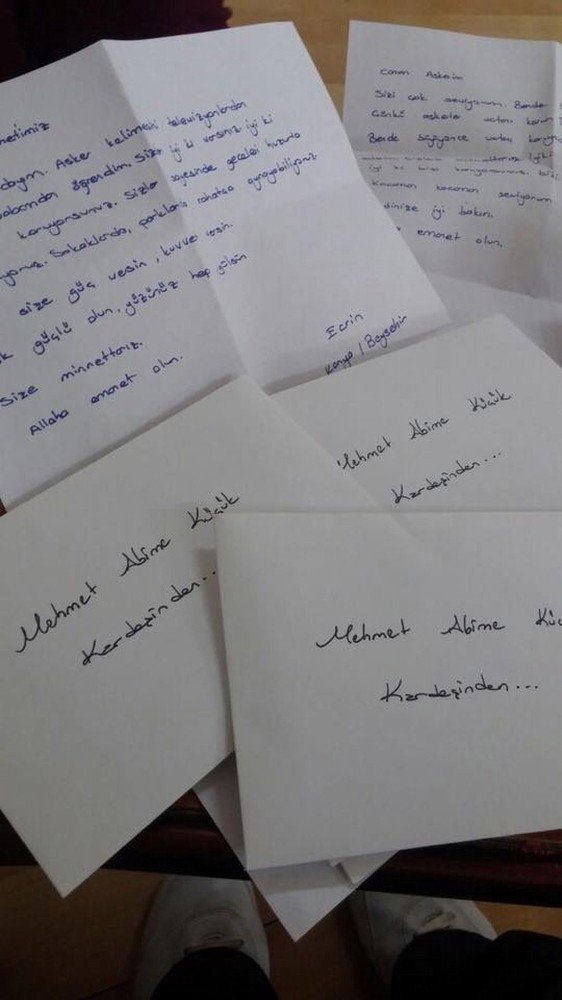 metimiz
Asker kelimesini televizyonlardan
öğrendim. Sizler iyi ki varsınız iyi ki
koruyorsunuz. Sizler sayesinde geceleri huzurla
Sokaklarda, parklarda rahatca oynayabiliyoruz.
size güç versin, kuvvet versin.
güçlü olun, yüzünüz hep gülsün
Size minnettarız.
Allaha emanet olun.
Ecrin
Konya / Beyşehir
Canım Askerim
Sizi çok seviyorum. Bende
Çünkü askerler vatanı korur
Bende büyüyünce vatanı
iyi ki bizi koruyorsunuz.
kocaman kocaman seviyorum
dinize iyi bakın.
emanet olun.
Mehmet Abime Küçük
Kardeşinden...
Mehmet Abime Küçük
Kardeşinden...
Mehmet Abime Küç
Kardeşinden...